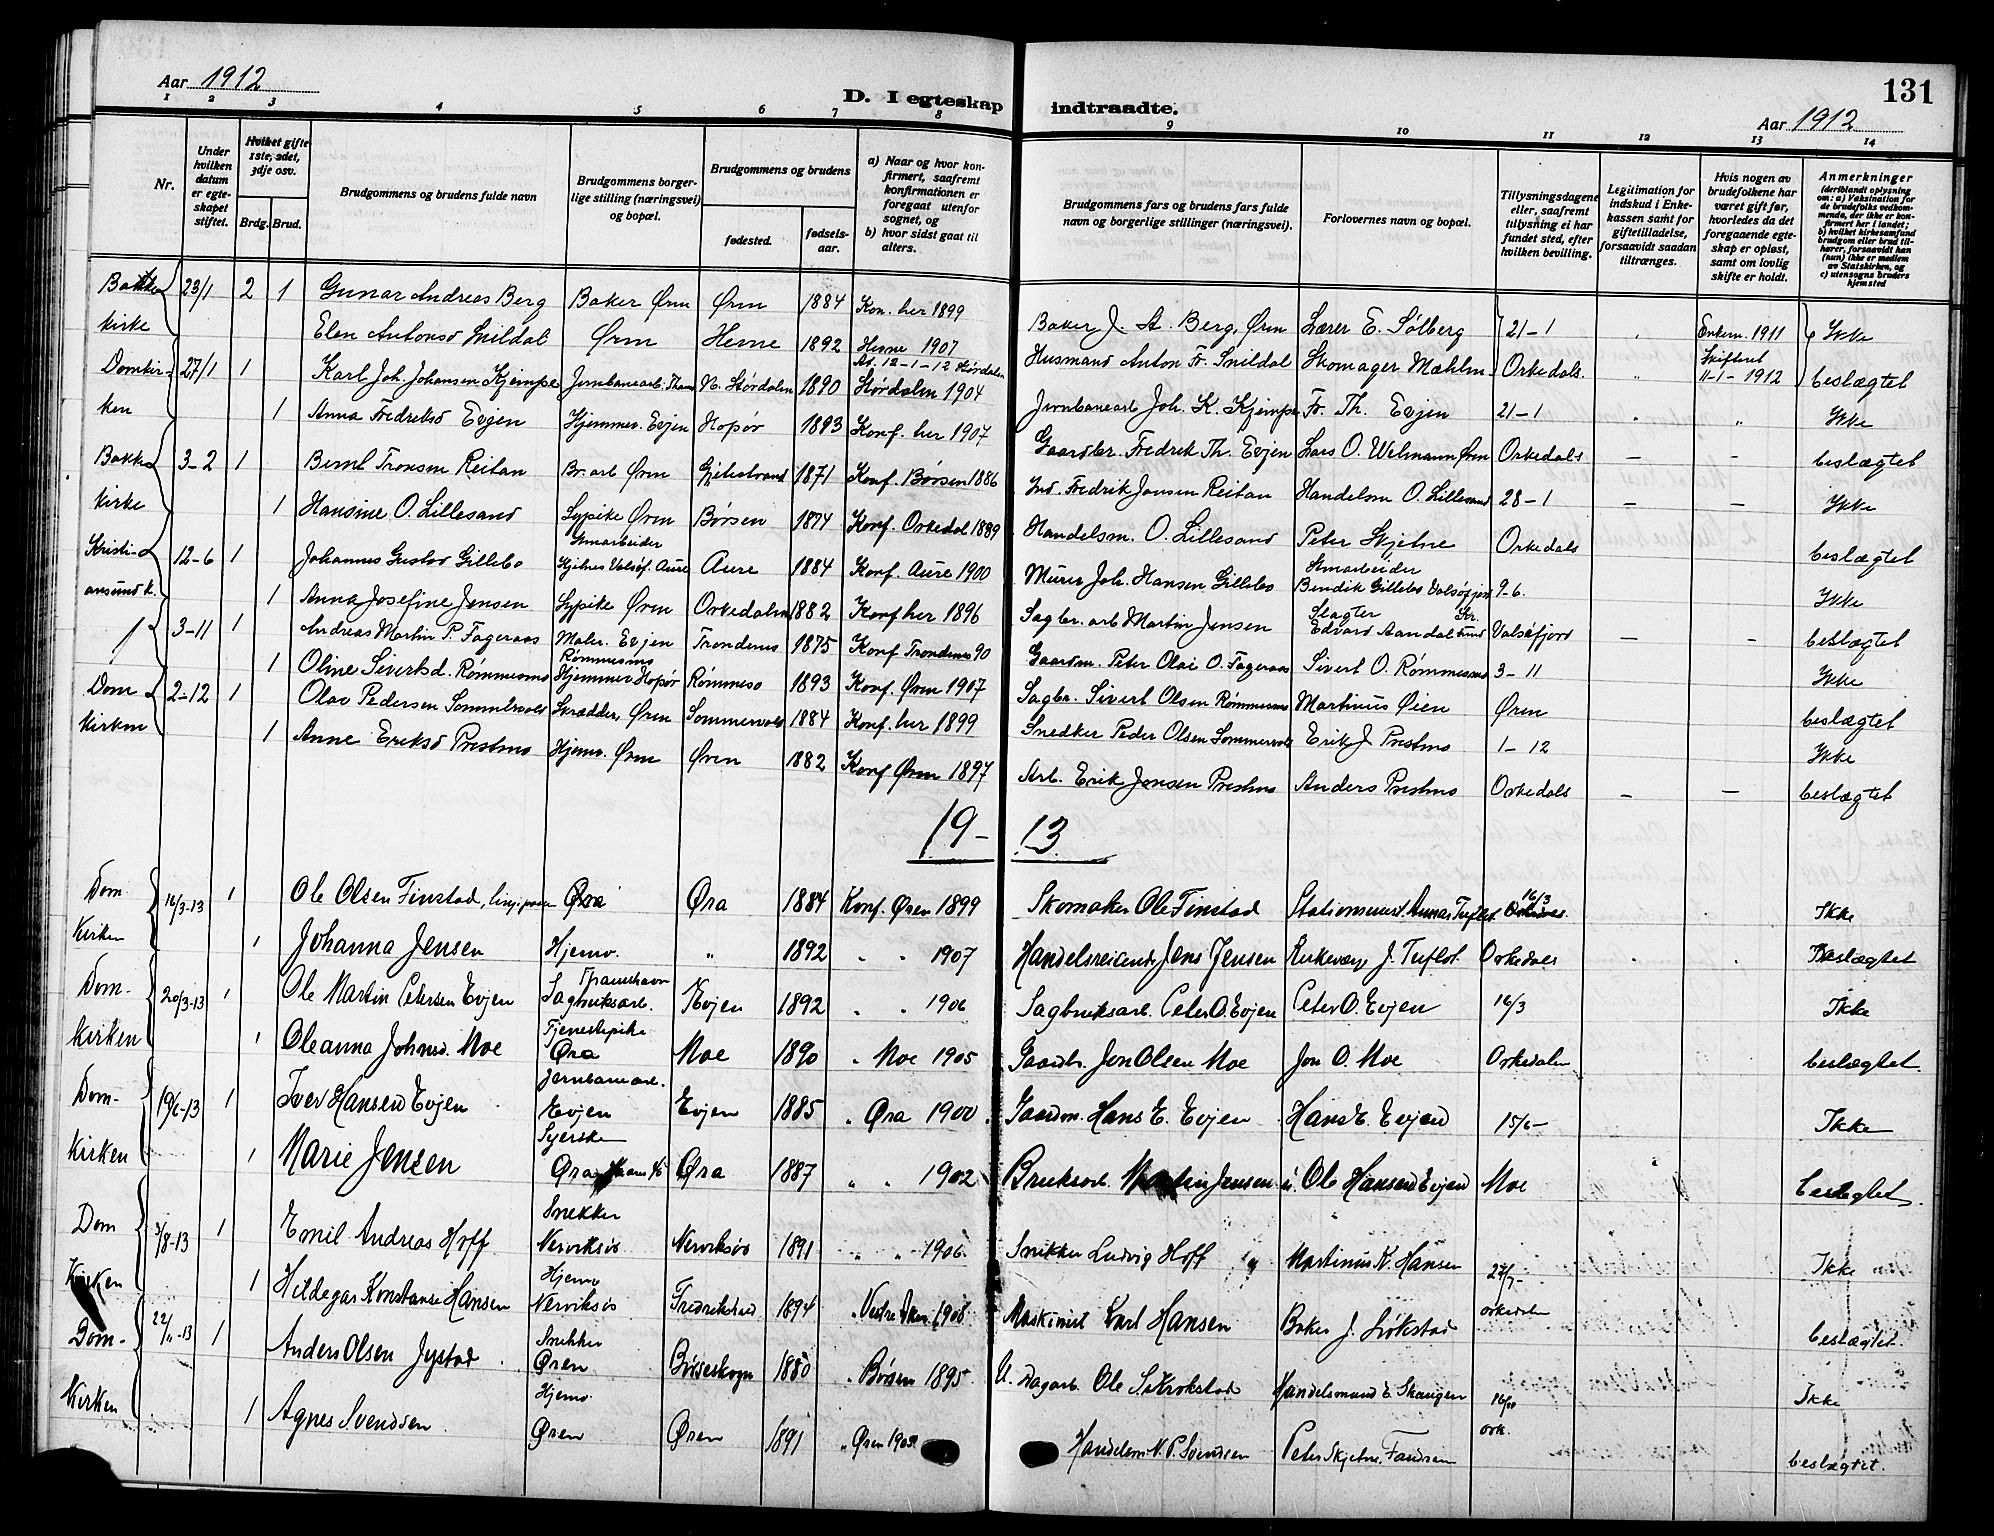 Aar 1912
D. I egteskap
indtraadte.
131
Aar 1912
1 2 3 4 5 6 7 8 9 10 11 12 13 14
Nr.
Under hvilken datum er egteskapet stiftet.
Hvilket gifte 1ste, 2det, 3dje osv.
Brdg. Brud.
Brudgommens og brudens fulde navn
Brudgommens borgerlige stilling (næringsvei) og bopæl.
Brudgommens og brudens
fødested.
fødselsaar.
a) Naar og hvor konfirmert, saafremt konfirmationen er foregaat utenfor sognet, og
b) hvor sidst gaat til alters.
Brudgommens fars og brudens fars fulde navn og borgerlige stillinger (næringsvei).
Forlovernes navn og bopæl.
Tillysningsdagene eller, saafremt tillysning ei har fundet sted, efter hvilken bevilling.
Legitimation for indskud i Enkekassen samt for giftetilladelse, forsaavidt saadan tiltrænges.
Hvis nogen av brudefolkene har været gift før, hvorledes da det foregaaende egteskap er opløst, samt om lovlig skifte er holdt.
Anmerkninger
(deriblandt oplysning om: a) Vaksination for de brudefolks vedkommende, der ikke er konfirmert her i landet; b) hvilket kirkesamfund brudgom eller brud tilhører, forsaavidt han (hun) ikke er medlem av Statskirken, og c) utensogns bruders hjemsted
Bakke 23/1 2 1 Gunar Andreas Berg Baker Ørn Ørn 1884 Kon. her 1899 Baker J. A. Berg, Ørn Lærer E. Sølberg 21-1 Enkem. 1911 Ikke
kirke Elen Antonsd Snildal Ørn Hemne 1892 Hemne 1907 Husmand Anton Fr. Snildal Skomager Mæhlm Orkedals. Skiftent 11-1-1912 beslægtet
Domkir- 27/1 1 Karl Joh. Johansen Kjempe Jernbanearb. Tham N. Størdalen 1890 At 12-1-12 Størdalen Størdalen 1904 Jernbanearb Joh. K. Kjempe Fr. Th. Evjen 21-1 Ikke
ken 1 Anna Fredriksd Evjen Hjemmev. Evjen Hopør 1893 Konf. her 1907 Gaardbr. Fredrik Th. Evjen Lars O. Welmann Ørn Orkedals beslægtet
Bakke 3-2 1 Bernt Tronsen Reitan Br. arb Ørn Gjetestrand 1871 Konf. Børsen 1886 Ind. Fredrik Jonsen Reitan Handelsm O. Lillesand 28-1 Ikke
kirke 1 Hansine O. Lillesand Sypike Ørn Børsen 1874 Konf. Orkedal 1889 Handelsm. O. Lillesand Peter Skjetne Orkedals beslægtet
Kristi- 12-6 1 Johannes Gustav Gillebo Stenarbeider Kjelnes Valsøf. Aure Aure 1884 Konf. Aure 1900 Murer Joh. Hansen Gillebo Stenarbeider Bendik Gillebo Valsøfjord 9-6. Ikke
ansund k. 1 Anna Josefine Jensen Sypike Ørn Orkedalen 1882 Konf her 1896 Sagbr. arb Martin Jensen Slagter Edvard Aandal Kr. sund Valsøfjord beslægtet
3-11 1 Andreas Martin P. Fageraas Maler. Evjen Trondenes 1875 Konf Trondenes 90 Gaardm. Peter Olai O. Fageraas Sivert O. Rømmesmo 3-11 Ikke
1 Oline Sivertsd. Rømmesmo Rømmesmo Hjemmev Hopør Rømmesø 1893 Konf. Ørn 1907 Sagbr. Sivert Olsen Rømmesmo Martinus Øien Ørn beslægtet
Dom 2-12 1 Olav Pedersen Sommervold Skrædder, Ørn Sommervold 1884 Konf. her 1899 Snedker Peder Olsen Sommervold Erik J Prestmo 1-12 Ikke
kirken 1 Anne Eriksd Prestmo Hjemv. Ørn Ørn 1882 Konf Ørn 1897 Arb. Erik Jonsen Prestmo Anders Prestmo Orkedals beslægtet
19- 13
Dom- 16/3-13 1 Ole Olsen Finstad, Øra Øra 1884 Konf. Øren 1899 Skomaker Ole Finstad Stationsmest. Tuflot 16/3 Ikke
Kirken 1 Johanna Jensen Hjemv. " 1892 " " 1907 Handelsreisende Jens Jensen Kirkeværge J. Tuflot Orkedals Beslægtet
Dom- 20/3-13 1 Ole Martin Petersen Evjen Thamshavn Sagbruksarb. Evjen 1892 " " 1906 Sagbruksarb. Peter O. Evjen Peter O. Evjen 16/3 Ikke
Kirken 1 Oleanna Johnsd. Moe Tjenestepike Øra Moe 1890 " Moe 1905 Gaardbr. Jon Olsen Moe Jon O. Moe Orkedalen beslægtet.
Dom- 19/6-13 1 Iver Hansen Evjen Jernbanearb. Evjen Evjen 1885 " Øra 1900 Gaardm. Hans E. Evjen Hans E. Evjen 15/6- Ikke
Kirken 1 Marie Jensen Syerske Øra Øra 1887 " " 1902 Bruksarb. Martin Jensen Ole Hansen Evjen Moe beslægtet
Dom 3/8-13 1 Emil Andreas Hoff Snekker Nerviksøs Nerviksøs 1891 " " 1906. Snikker Ludvig Hoff Martinus K. Hansen 27/7- Ikke
Kirken 1 Hildegar Konstanse Hansen Hjemv Nerviksøs Fredrikstad 1894 " Vestre Aker 1908 Maskinist Karl Hansen Baker J. Løkstad Orkedalen beslægtet.
Dom- 22/11-13 1 Anders Olsen Jystad Snekker Øren Børseskogn 1880 " Børsen 1895 U. Dagarb. Ole S. Krokstad Handelsmand E. Skaugen 16/11 Ikke
Kirken 1 Agnes Svendsen Hjemv. Øren Øren 1891 " Øren 1905 Handelsm. N. P. Svendsen Peter Skjetne, Fandrem Ork. beslægtet.